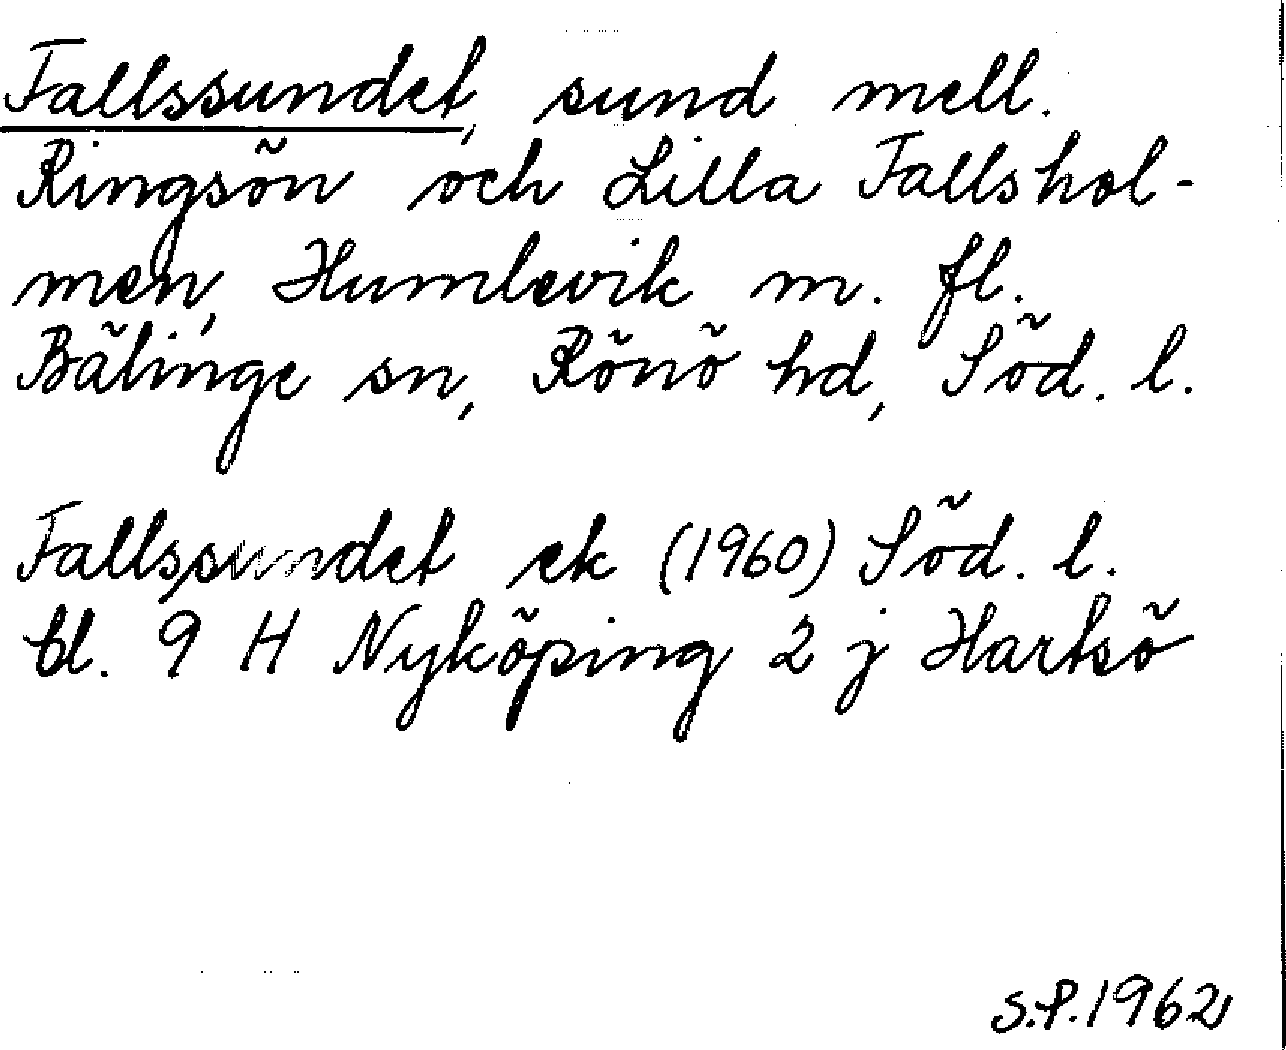 Fallssundet, sund mell.
Ringsön och Lilla Fallshol-
men, Humlevik m. fl.
Bälinge sn, Rönö hd, Söd. l.
Fallssundet ek (1960) Söd. l.
bl. 9 H Nyköping 2 j Hartsö
S.P. 1962